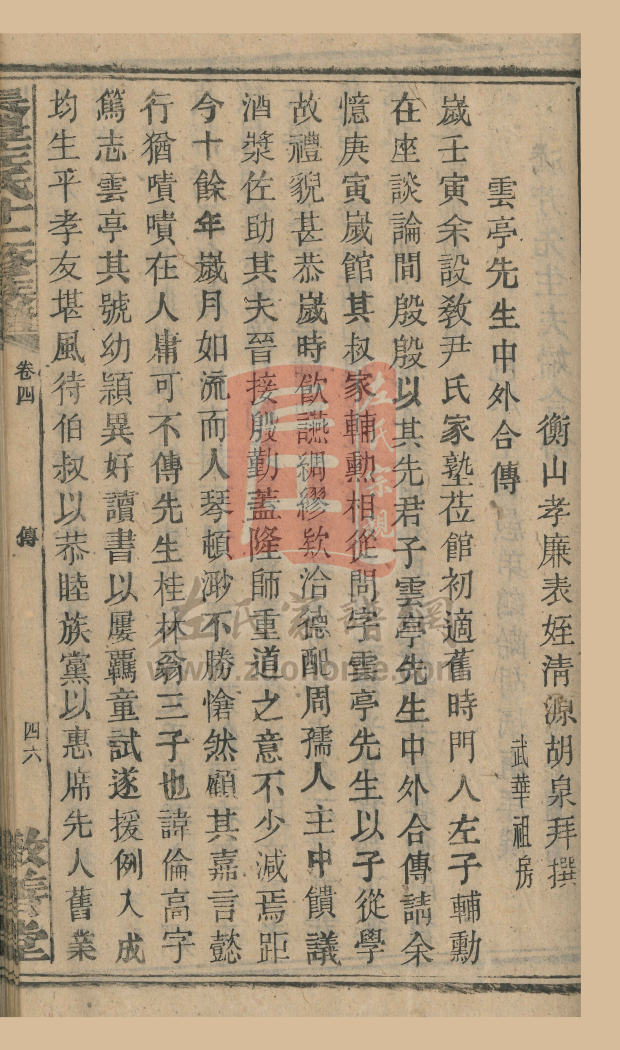 衡山孝廉表姪清源胡泉拜撰
武華祖房
雲亭先生中外合傳
歲壬寅余設教尹氏家塾莅館初適舊時門人左子輔勳
在座談論間殷殷以其先君子雲亭先生中外合傳請余
憶庚寅歲館其叔家輔勲相從問学雲亭先生以子從學
故禮貌甚恭歲時飮讌綢繆欵洽德配周孺人主中饋議
酒漿佐助其夫晉接殷勤蓋隆師重道之意不少減焉距
今十餘年歲月如流而人琴頓渺不勝愴然顧其嘉言懿
行猶嘖嘖在人庸可不傳先生桂林翁三子也諱倫高字
篤志雲亭其號幼穎異好讀書以屢覊童試遂援例入成
均生平孝友堪風待伯叔以恭睦族黨以惠席先人舊業
卷四
傳
四六
敦善堂
左氏宗親
左氏家譜網
www.zdohome.com